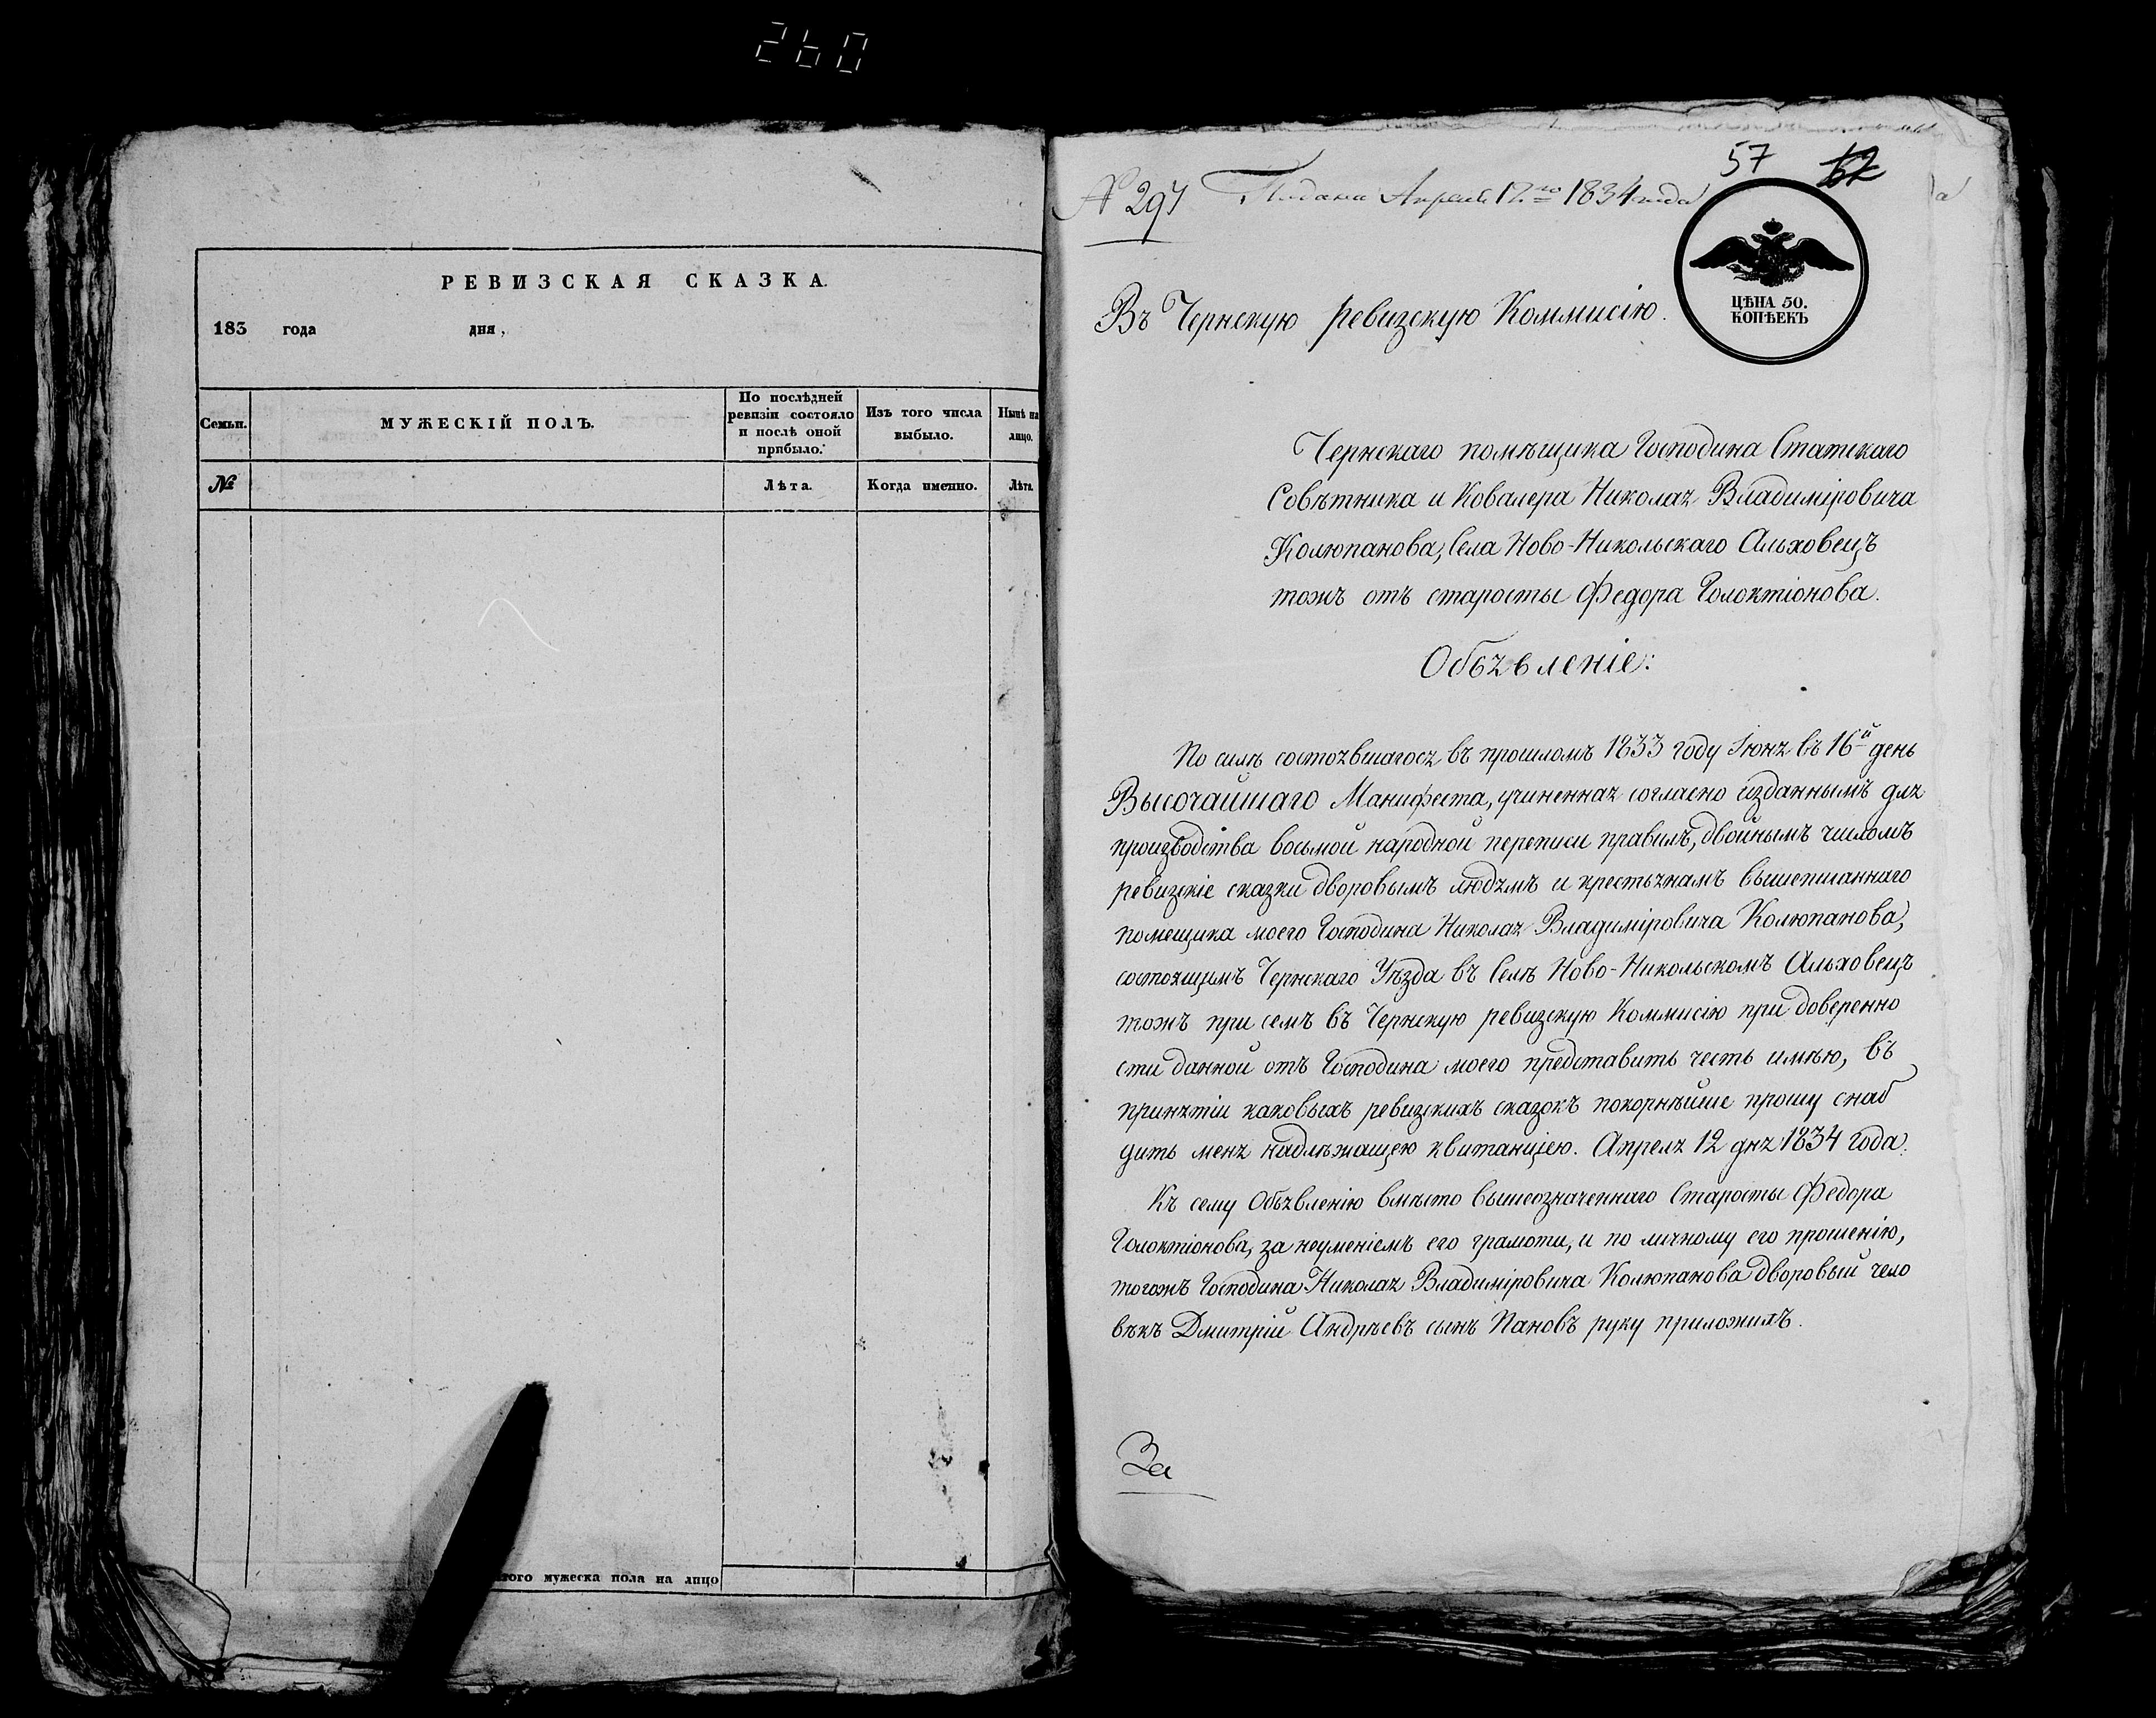 260
РЕВИЗСКАЯ СКАЗКА.
183 года дня,
Семьи.
МУЖЕСКІЙ ПОЛЪ.
По послѣдней
ревизіи состояло
и послѣ оной
прибыло.
Изъ того числа
выбыло.
Нынѣ на
лицо.
№
Лѣта.
Когда именно.
Лѣта.
того мужеска пола на лицо
57
№ 297 Подана Апреля 12го 1834 года
ЦѢНА 50.
КОПѢЕКЪ
Въ Чернскую ревизскую Коммисію.
Чернскаго помѣщика Господина Статскаго
Совѣтника и Ковалера Николая Владиміровича
Колюпанова, Села Ново-Никольскаго Альховецъ
тожъ отъ старосты Федора Голоктіонова.
Объявленіе:
По силѣ состоявшагося въ прошломъ 1833 году Іюня въ 16й день
Высочайшаго Манифеста, учиненная согласно изданнымъ для
производства восьмой народной переписи правилъ, двойнымъ числомъ
ревизскіе сказки дворовымъ людямъ и крестьянамъ вышеписаннаго
помещика моего Господина Николая Владиміровича Колюпанова,
состоящимъ Чернскаго Уѣзда въ Селѣ Ново-Никольскомъ Альховецъ
тожъ при семъ въ Чернскую ревизскую Коммисію при доверенно
сти данной отъ Господина моего представить честь имѣю, въ
принятіи каковыхъ ревизскихъ сказокъ покорнѣйше прошу снаб
дить меня надлѣжащею квитанціею. Апреля 12 дня 1834 года.
Къ сему Объявленію вмѣсто вышеозначеннаго Старосты Федора
Голоктіонова, за неуменіемъ его грамоти, и по личному его прошенію,
тогожъ Господина Николая Владиміровича Колюпанова дворовый чело
вѣкъ Дмитрій Андрѣевъ сынъ Пановъ руку приложилъ.
За